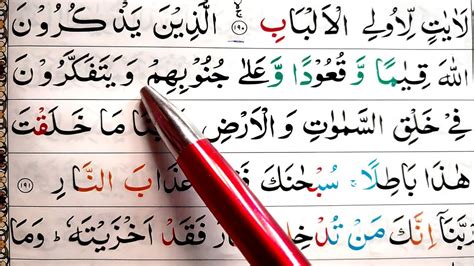 لَاٰيٰتٍ لِّاُولِى الْاَلْبَابِ ۝۱۹۰ الَّذِيْنَ يَذْكُرُوْنَ
اللّٰهَ قِيٰمًا وَّ قُعُوْدًا وَّ عَلٰى جُنُوْبِهِمْ وَ يَتَفَكَّرُوْنَ
فِىْ خَلْقِ السَّمٰوٰتِ وَ الْاَرْضِ مَا خَلَقْتَ
هٰذَا بَاطِلًا سُبْحٰنَكَ عَذَابَ النَّارِ ۝۱۹۱
رَبَّنَاۤ اِنَّكَ مَنْ تُدْخِلِ فَقَدْ اَخْزَيْتَهٗ وَمَا